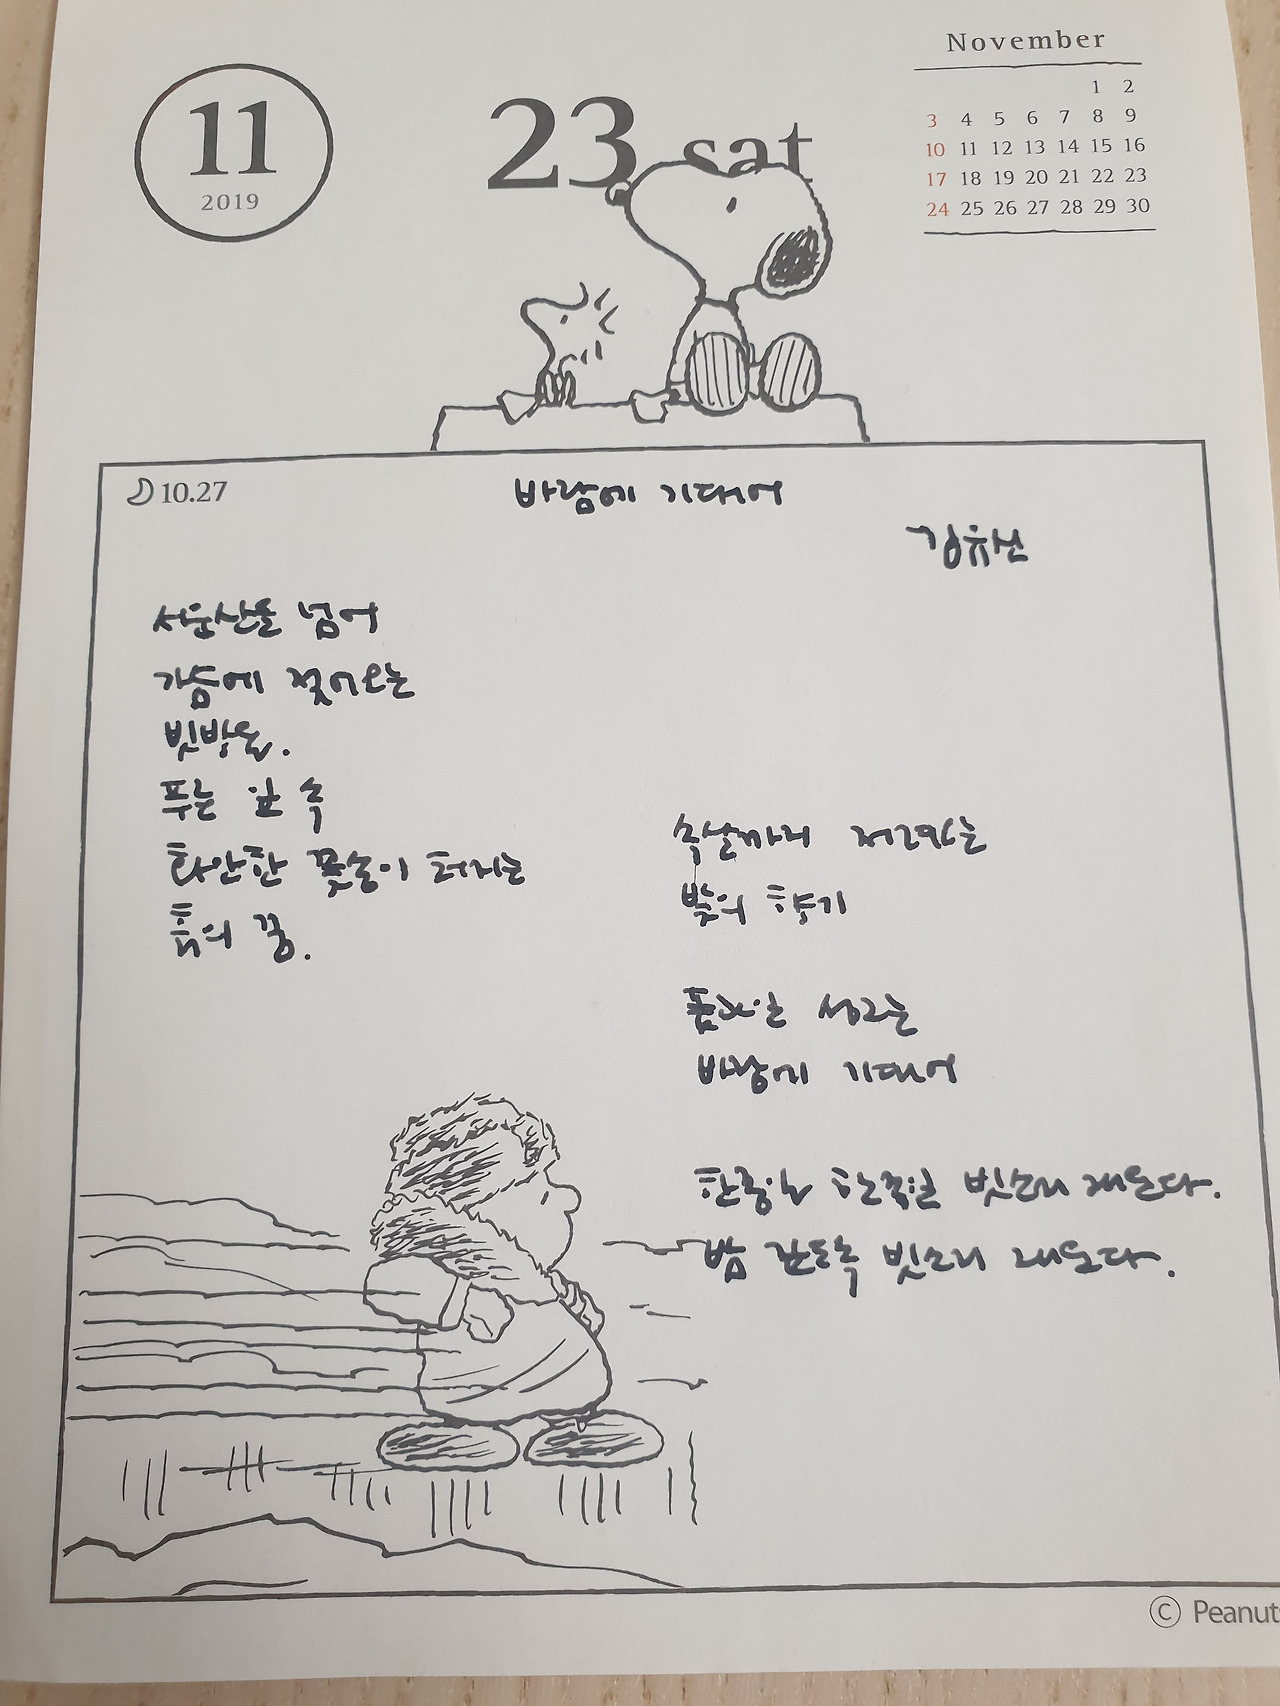 11
2019
23 sat
November
1 2
3 4 5 6 7 8 9
10 11 12 13 14 15 16
17 18 19 20 21 22 23
24 25 26 27 28 29 30
10.27
바람에 기대어
김유선
서운산을 넘어
가슴에 젖어오는
빗방울.
푸른 잎 속
화안한 꽃송이 터지는
흙의 꿈.
속살까지 저려오는
빛의 향기
풀과 잎 섞는
바람에 기대어
한종일 한종일 빗소리 재운다.
밤 감도록 빗소리 재운다.
© Peanuts